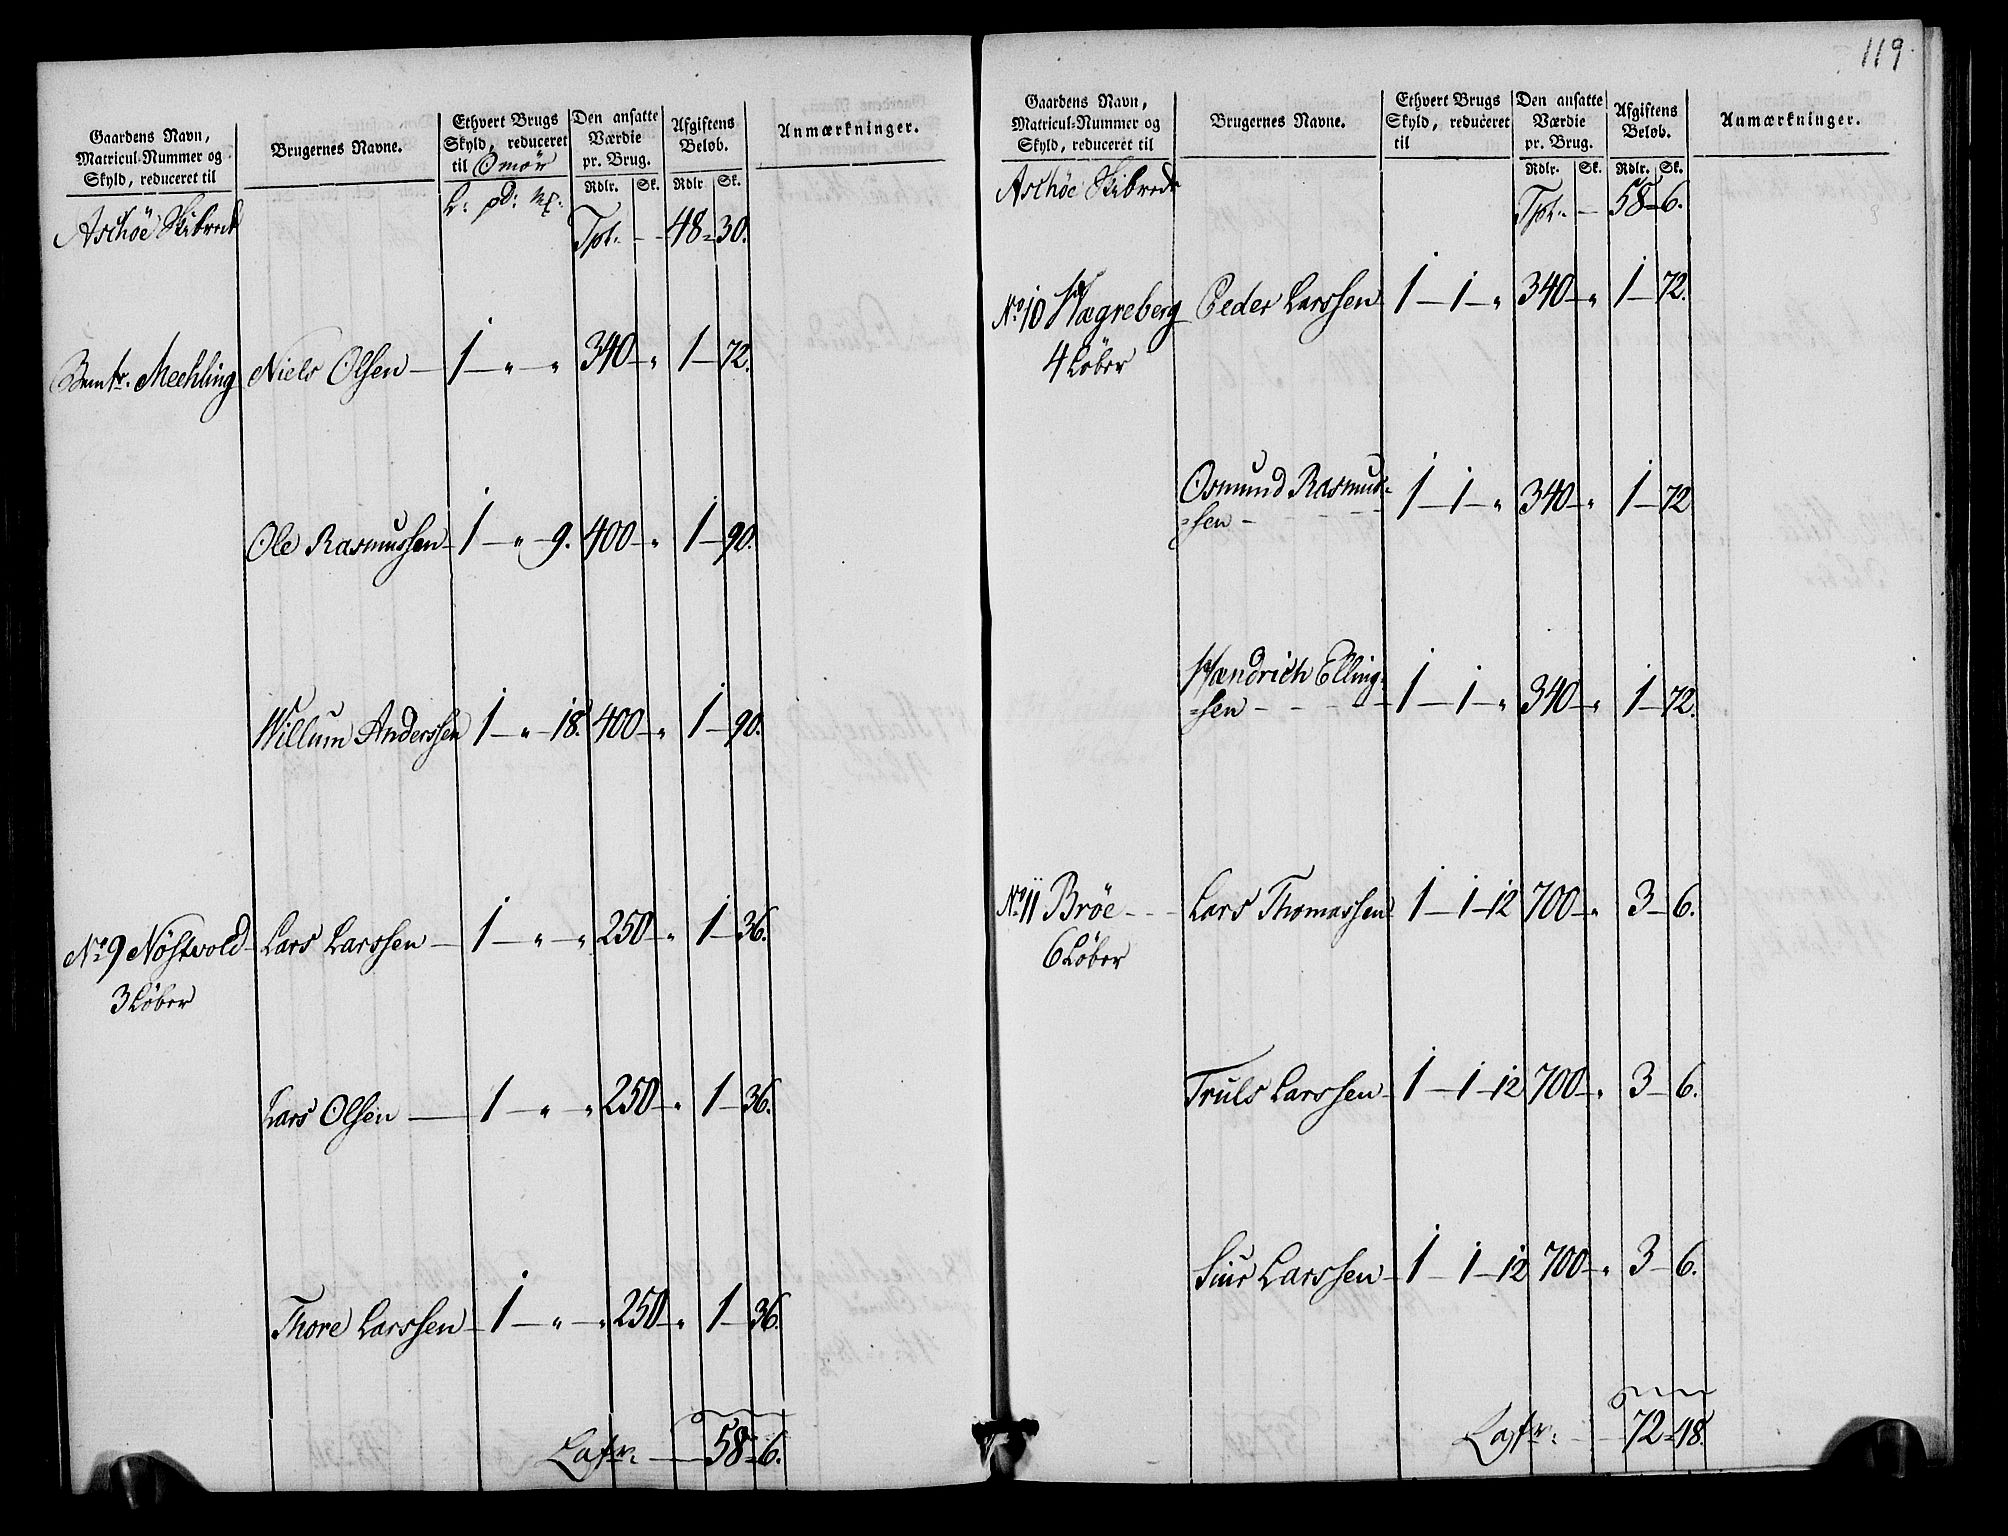 Gaardens Navn,
Matricul-Nummer og
Skyld, reduceret til
Brugernes Navne.
Ethvert Brugs
Skyld, reduceret
til Omør
Den ansatte
Værdie
pr. Brug.
Afgiftens
Beløb.
Anmærkninger.
Rdlr. Sk. Rdlr Sk.
Aschöe Skibrede
Tpt. — 48 = 30.
Bemte. Mechling Niels Olsen — 1 — " — " 340 — " 1 — 72.
Ole Rasmussen — 1 — " — 9. 400 — " 1 — 90.
Willum Anderssen 1 — " — 18. 400 — " 1 — 90.
No. 9 Nöstvold — Lars Larssen — 1 — " — " 250 — " 1 — 36.
3 Löber
Lars Olsen — 1 — " — " 250 — " 1 — 36.
Thore Larssen — 1 — " — " 250 — " 1 — 36.
Latr. — 58 = 6.
119
Gaardens Navn,
Matricul-Nummer og
Skyld, reduceret til
Brugernes Navne.
Ethvert Brugs
Skyld, reduceret
til
Den ansatte
Værdie
pr. Brug.
Afgiftens
Beløb.
Anmærkninger.
Rdlr. Sk. Rdlr. Sk.
Aschöe Skibrede
Tpt. — 58 = 6.
No. 10 Hægreberg Peder Larssen 1 — 1 — " 340 — " 1 — 72.
4 Löber
Osmund Rasmus=
=sen — 1 — 1 — " 340 — " 1 — 72
Hændrich Elling=
=sen — 1 — 1 — " 340 — " 1 — 72.
No. 11 Bröe — Lars Thomassen 1 — 1 — 12 700 — " 3 — 6.
6 Löber
Truls Larssen — 1 — 1 — 12 700 — " 3 — 6.
Siur Larssen — 1 — 1 — 12 700 — " 3 — 6.
Latr. — 72 = 48.